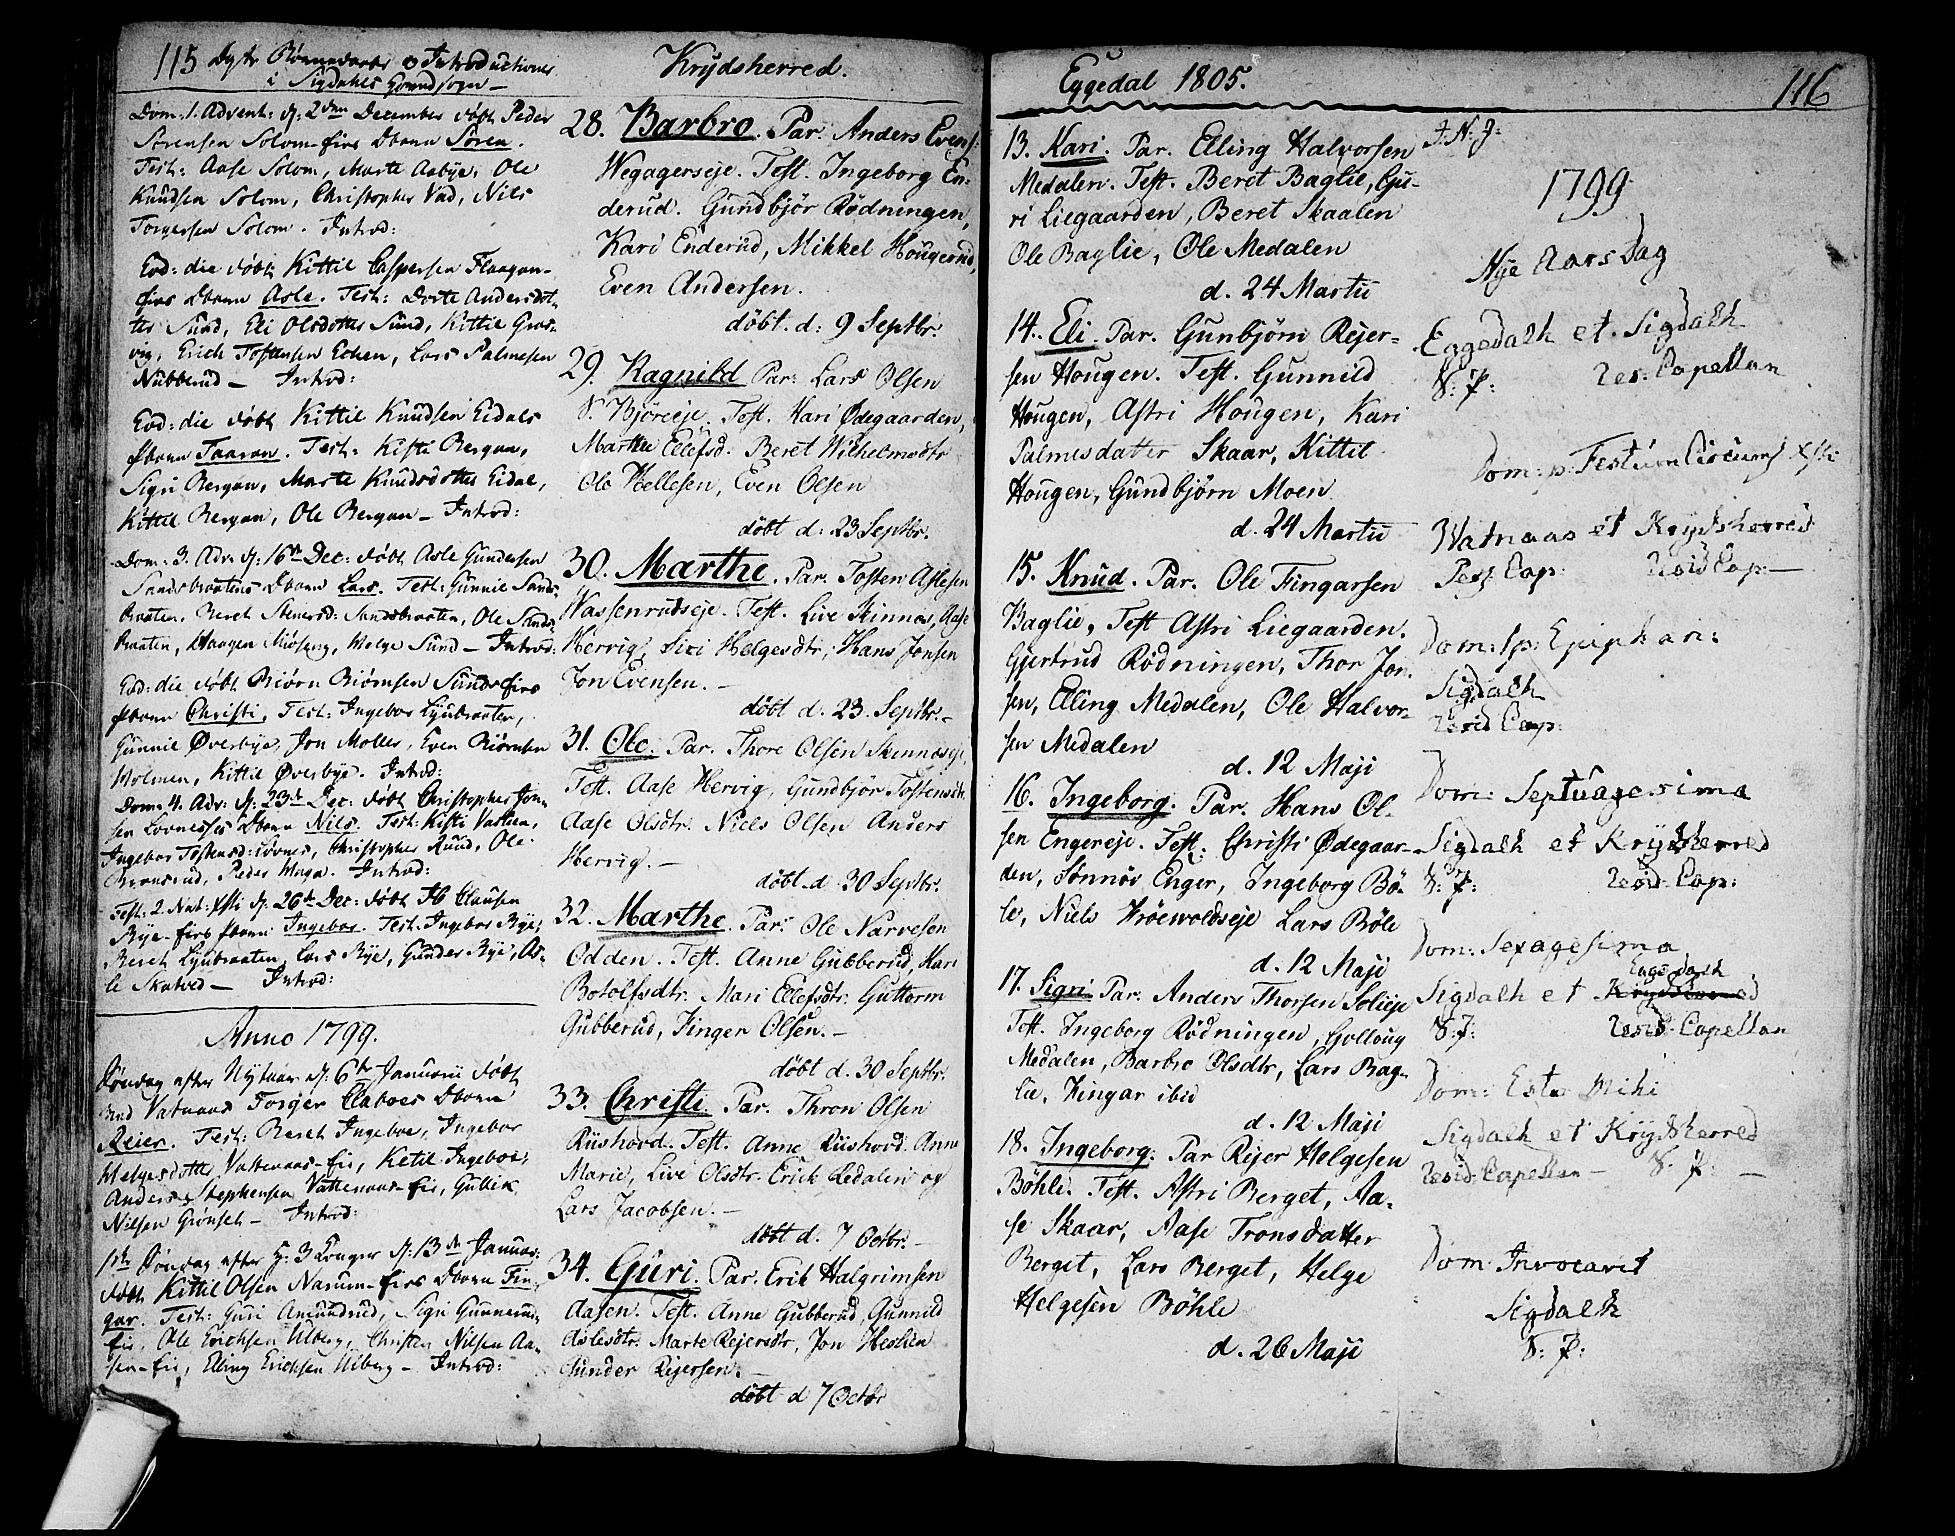 115 Dybte Børn
Introductioner
i Sigdahls
Dom: 1. Advent: d: 2den December døbt Peder
Sørensen Solom-eies Dbarn Søren.
Test: Aase Solom, Marte Aabye, Ole
Knudsen Solom, Christopher Vad, Nils
Torgersen Solom. Introd:
Eod: die døbt Kittil Caspersen Flaagan-
eies Dbarn Asle. Test: Dorte Andersdot-
ter Sund, Eli Olsdotter Sund, Kittil Græs-
vig, Erich Tostensen Echern, Lars Palmesen
Nubberud - Introd:
Eod: die døbt Kittil Knudsen Eidals
Pbarn Taaran. Test: Kisti Bergan,
Sigri Bergan, Marte Knudsdotter Eidal,
Kittil Bergan, Ole Bergan - Introd:
Dom: 3. Adv: d: 16de Dec: døbt Asle Gundersen
Sandsbraatens Dbarn Lars. Test: Gunnil Sands-
braaten, Beret Stenersd: Sandsbraaten, Ole Sands-
braaten, Haagen Sund - Introd:
Eod: die døbt Biørn Biørnsen Sunds-eies
Pbarn Christi. Test: Ingebor Lyubraaten,
Gunnil Øverbye, Jon Moller, Even Biørnsen
Molmen, Kittil Øverbye. Introd:
Dom: 4. Adv: d: 23de Dec: døbt Christopher Jon-
sen Dbarn Nils. Test: Kisti Vastien,
Ingebor Tostensd: Lovnes, Christopher Ruud, Ole
Peder Moga. Introd:
Fest: 2. Nat: Xsti d: 26de Dec: døbt Ib Clausen
Bye-eies Pbarn Ingebor. Test: Ingebor Bye,
Beret Lyubraaten, Lars Bye, Gunder Bye, As-
le Skatvet - Introd:
Anno 1799.
Søndag efter Nytaar d: 6te Januarii døbt
ved Vatnaas Torger Claboes Dbarn
Reier. Test: Beret Ingeboe, Ingebor
Helgesdotter Vattenaas-eie, Ketil Ingeboe,
Anders Stephensen Vattenaas-eie, Gulbik
Nilsen Grønset - Introd:
1ste Søndag efter H: 3 Konger d: 13de Januar:
døbt Kittil Olsen Narum-eies Dbarn Fin-
gar. Test: Guri Amundrud, Sigri Gunnerud-
eie, Ole Erichsen Ulberg, Christen Nilsen Aa-
sen-eie, Elling Erichsen Ulberg - Introd:
Krydsherred.
28. Barbro. Par. Anders Evens:
Wegagerseje. Test. Ingeborg En-
derud. Gundbjør Rødningen,
Kari Enderud, Mikkel Hougerud,
Even Andersen.
døbt. d: 9 Septbr.
29. Ragnild Par: Lars Olsen
S. Bjøreeje. Test. Kari Ødegaarden,
Marthe Ellefsd. Beret Wilhelmsdtr
Ole Hellesen, Even Olsen
døbt d: 23 Septbr.
30. Marthe. Par. Tosten Aslesen
Nassenrudseje. Test. Live Skinnes, Aase
Hervig, Siri Helgesdtr, Hans Jonsen
Jon Evensen. -
døbt d. 23. Septbr. -
31. Ole. Par. Thore Olsen Skinnæseje
Test. Aase Hervig, Gundbjør Tostensdtr.
Aase Olsdtr. Niels Olsen Anders
Hervig. -
døbt d 30 Septbr.
32. Marthe. Par. Ole Narvesen
Odden. Test. Anne Gubberud, Kari
Botolfsdtr. Mari Ellefsdtr. Guttorm
Gubberud, Finger Olsen. -
døbt d. 30 Septbr.
33. Christi. Par. Thron Olsen
Riishovd. Test. Anne Riishovd. Anne
Marie, Live Olsdtr. Erick Ledalen og
Lars Jacobsen. -
døbt d. 7 Octbr. -
34. Guri. Par. Erik Halgrimsen
Aasen. Test. Anne Gubberud, Gunnild
Aslesdtr. Marte Rejersdtr, Jon Heslien
Gunder Rejersen. -
døbt d 7 Octbr
Eggedal 1805.
13. Kari. Par. Elling Halvorsen
Medalen. Test. Beret Baglie, Gu-
ri Liegaarden, Beret Skaalen
Ole Baglie, Ole Medalen
d. 24 Martii
14. Eli. Par. Gunbjørn Rejer-
sen Hougen. Test. Gunnild
Hougen, Astri Hougen, Kari
Palmesdatter Skaar, Kittil
Hougen, Gundbjørn Moen
d. 24 Martii
15. Knud. Par. Ole Fingarsen
Baglie, Test Astri Liegaarden.
Gjertrud Rødningen, Thor Jon-
sen, Elling Medalen, Ole Halvor-
sen Medalen
d. 12 Maji
16. Ingeborg. Par. Hans Ol-
sen Engereje. Test. Christi Ødegaar-
den, Sønnøv Enger, Ingeborg Bø-
le, Niels Frøewoldseje Lars Bøle
d. 12 Maji
17. Sigri Par. Anders Thorsen Solieje
Test. Ingeborg Rødningen, Golloug
Medalen, Barbro Olsdtr, Lars Bag-
lie, Fingar ibid
d. 12 Maji
18. Ingeborg. Par Rejer Helgesen
Bøhle. Test. Astri Berget, Aa-
se Skaar, Aase Tronsdatter
Berget, Lars Berget, Helge
Helgesen Bøhle
d. 26 Maji
116
I: N: J:
1799
Nye Aars Dag
Eggedalh et Sigdalh
S: P: Res: Capellan
Dom: p: Festum Circums Xsti
Watnaas et Krydsherred
Pers: Cap: Resid Cap: -
Dom: 1 p: Epiphan:
Sigdalh
Resid Cap:
Dom: Septuagesima
Sigdalh et Krydsherred
S: P: Resid: Cap:
Dom: Sexagesima
Eggedalh
Sigdalh et Krydsherred
S: P: Resid: Capellan
Dom: Esto Mihi
Sigdalh et Krydsherred
Resid: Capellan - S: P: -
Dom Invocavit
Sigdalh
S: P: